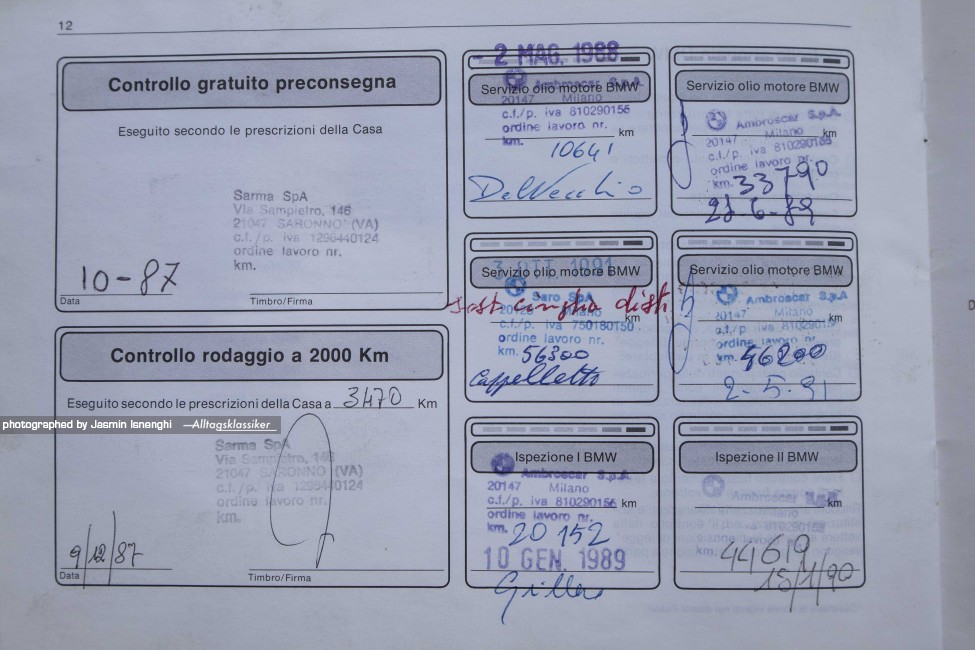 12
Controllo gratuito preconsegna
Eseguito secondo le prescrizioni della Casa
Sarma SpA
Via Sampietro, 146
21047 SARONNO (VA)
c.f./p. iva 1296440124
ordine lavoro nr.
km.
10-87
Data
Timbro/Firma
Controllo rodaggio a 2000 Km
Eseguito secondo le prescrizioni della Casa a 3470 Km
Sarma SpA
Via Sampietro, 146
21047 SARONNO (VA)
c.f./p. iva 1296440124
ordine lavoro nr.
km.
9/12/87
Data
Timbro/Firma
- 2 MAG. 1988
Servizio olio motore BMW
Ambroscar S.p.A
20147 Milano
c.f./p. iva 810290156
ordine lavoro nr.
km
km.
10641
DelVecchio
Servizio olio motore BMW
Ambroscar S.p.A
20147 Milano
km
c.f./p. iva 810290156
ordine lavoro nr.
km. 33790
6-89
3 OTT 1991
Servizio olio motore BMW
Saro SpA
Milano
km
c.f./p. iva 750180150
ordine lavoro nr.
km. 56300
Cappelletto
Servizio olio motore BMW
Ambroscar S.p.A
20147 Milano
km
c.f./p. iva
ordine lavoro nr.
km. 46200
2-5-91
Ispezione I BMW
Ambroscar S.p.A
20147 Milano
c.f./p. iva 810290156 km
ordine lavoro nr.
km. 20 152
10 GEN. 1989
Ispezione II BMW
Ambroscar
km
km. 44619
15/1/90
photographed by Jasmin Isnenghi —Alltagsklassiker